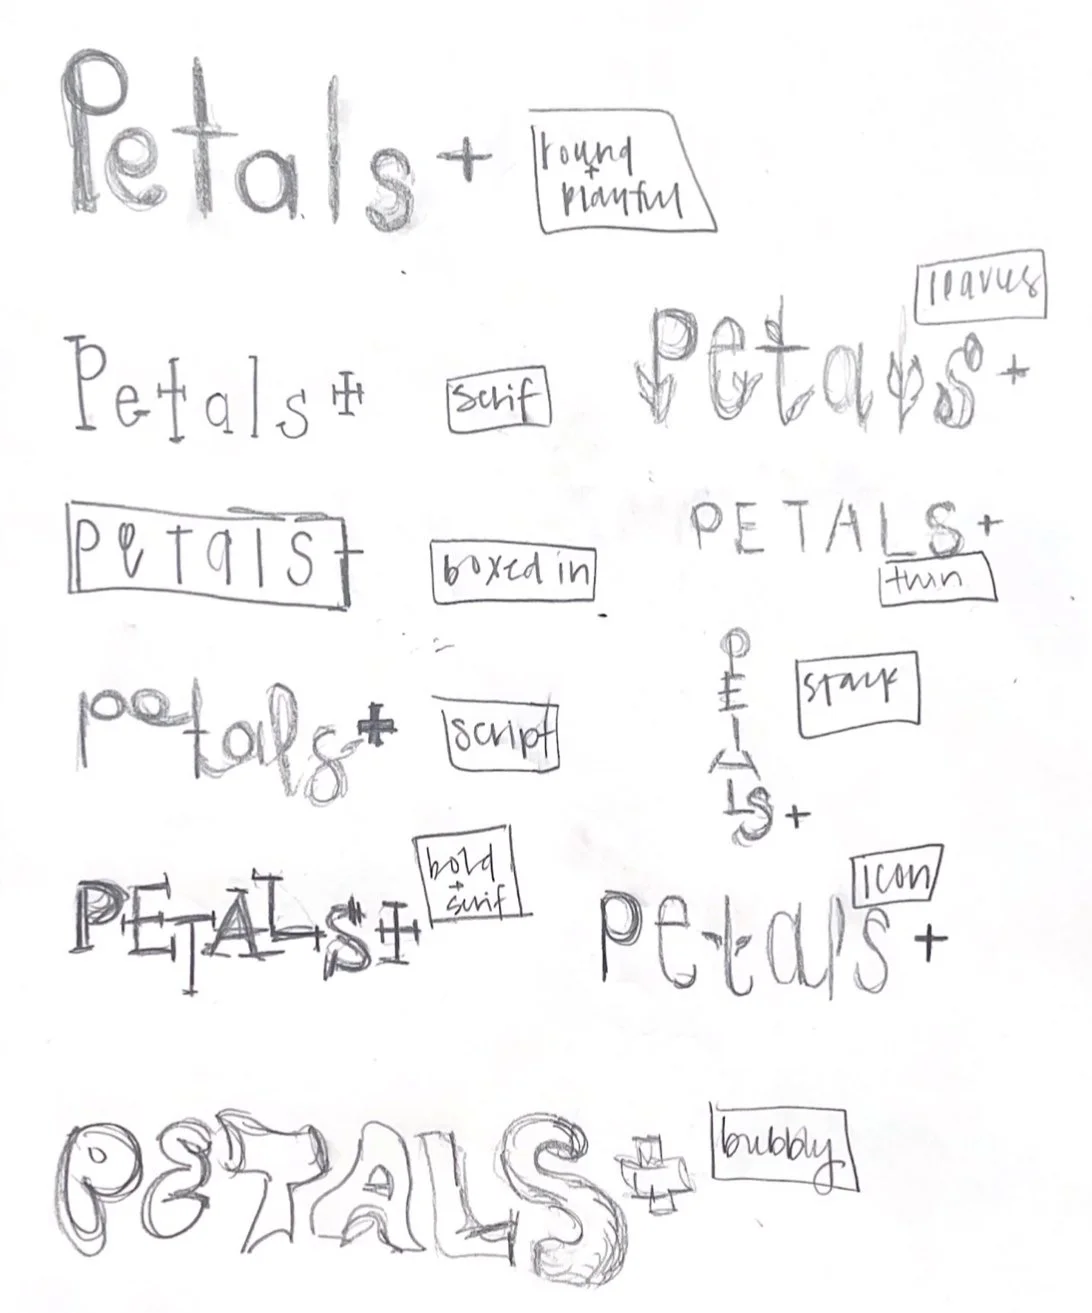 Petals +
round
+
playful
leaves
Petals +
Petals +
serif
Petals+
boxed in
PETALS+
thin
petals+
script
P
E
T
A
LS +
stack
bold
+
serif
PETALS+
icon
Petals +
PETALS+
bubbly